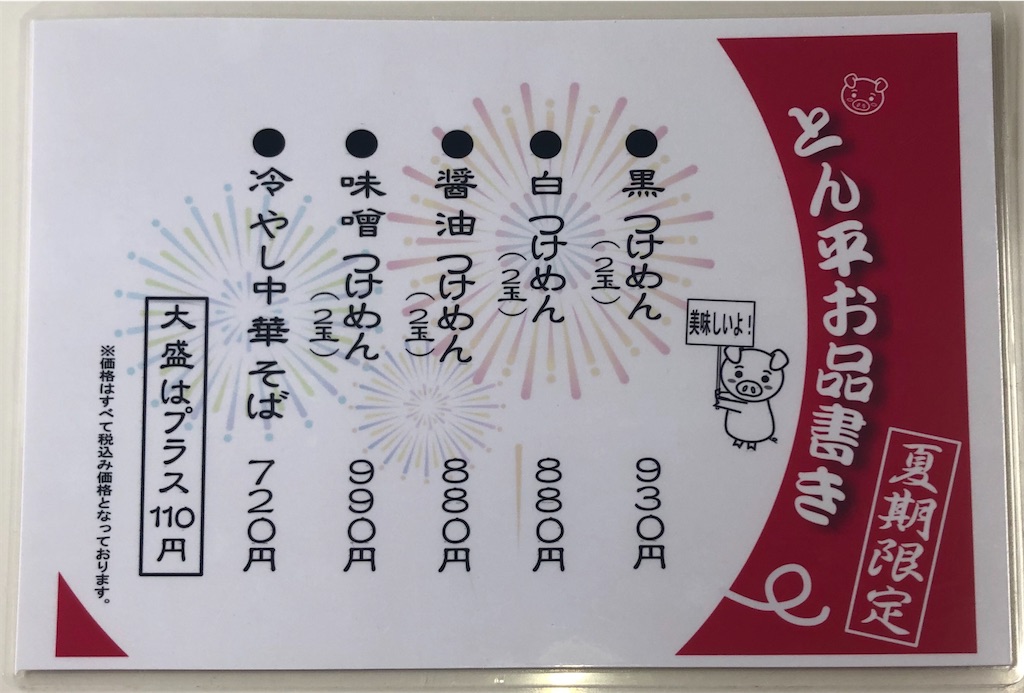 とん平お品書き
夏期限定
美味しいよ!
●黒つけめん(2玉) 930円
●白つけめん(2玉) 880円
●醬油つけめん(2玉) 880円
●味噌つけめん(2玉) 990円
●冷やし中華そば 720円
大盛はプラス110円
※価格はすべて税込み価格となっております。